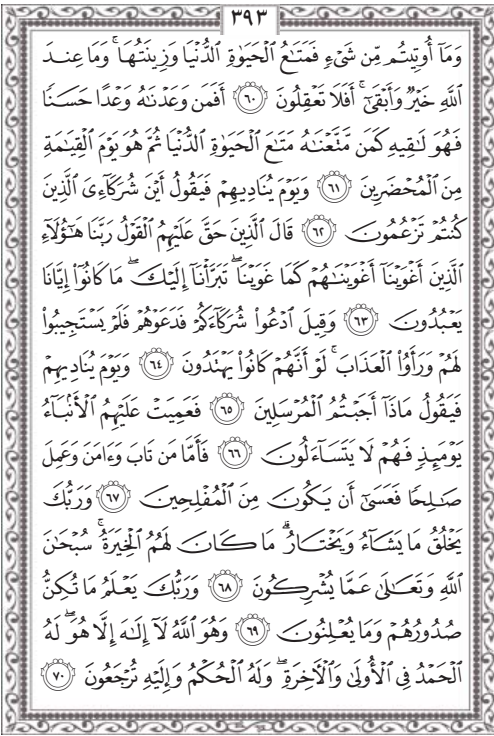 ٣٩٣
وَمَآ أُوتِيتُم مِّن شَىْءٍ فَمَتَـٰعُ ٱلْحَيَوٰةِ ٱلدُّنْيَا وَزِينَتُهَا ۚ وَمَا عِندَ
ٱللَّهِ خَيْرٌ وَأَبْقَىٰٓ ۚ أَفَلَا تَعْقِلُونَ ٦٠ أَفَمَن وَعَدْنَـٰهُ وَعْدًا حَسَنًا
فَهُوَ لَـٰقِيهِ كَمَن مَّتَّعْنَـٰهُ مَتَـٰعَ ٱلْحَيَوٰةِ ٱلدُّنْيَا ثُمَّ هُوَ يَوْمَ ٱلْقِيَـٰمَةِ
مِنَ ٱلْمُحْضَرِينَ ٦١ وَيَوْمَ يُنَادِيهِمْ فَيَقُولُ أَيْنَ شُرَكَآءِىَ ٱلَّذِينَ
كُنتُمْ تَزْعُمُونَ ٦٢ قَالَ ٱلَّذِينَ حَقَّ عَلَيْهِمُ ٱلْقَوْلُ رَبَّنَا هَـٰٓؤُلَآءِ
ٱلَّذِينَ أَغْوَيْنَآ أَغْوَيْنَـٰهُمْ كَمَا غَوَيْنَا ۖ تَبَرَّأْنَآ إِلَيْكَ ۖ مَا كَانُوٓا۟ إِيَّانَا
يَعْبُدُونَ ٦٣ وَقِيلَ ٱدْعُوا۟ شُرَكَآءَكُمْ فَدَعَوْهُمْ فَلَمْ يَسْتَجِيبُوا۟
لَهُمْ وَرَأَوُا۟ ٱلْعَذَابَ ۚ لَوْ أَنَّهُمْ كَانُوا۟ يَهْتَدُونَ ٦٤ وَيَوْمَ يُنَادِيهِمْ
فَيَقُولُ مَاذَآ أَجَبْتُمُ ٱلْمُرْسَلِينَ ٦٥ فَعَمِيَتْ عَلَيْهِمُ ٱلْأَنۢبَآءُ
يَوْمَئِذٍ فَهُمْ لَا يَتَسَآءَلُونَ ٦٦ فَأَمَّا مَن تَابَ وَءَامَنَ وَعَمِلَ
صَـٰلِحًا فَعَسَىٰٓ أَن يَكُونَ مِنَ ٱلْمُفْلِحِينَ ٦٧ وَرَبُّكَ
يَخْلُقُ مَا يَشَآءُ وَيَخْتَارُ ۗ مَا كَانَ لَهُمُ ٱلْخِيَرَةُ ۚ سُبْحَـٰنَ
ٱللَّهِ وَتَعَـٰلَىٰ عَمَّا يُشْرِكُونَ ٦٨ وَرَبُّكَ يَعْلَمُ مَا تُكِنُّ
صُدُورُهُمْ وَمَا يُعْلِنُونَ ٦٩ وَهُوَ ٱللَّهُ لَآ إِلَـٰهَ إِلَّا هُوَ ۖ لَهُ
ٱلْحَمْدُ فِى ٱلْأُولَىٰ وَٱلْـَٔاخِرَةِ ۖ وَلَهُ ٱلْحُكْمُ وَإِلَيْهِ تُرْجَعُونَ ٧٠